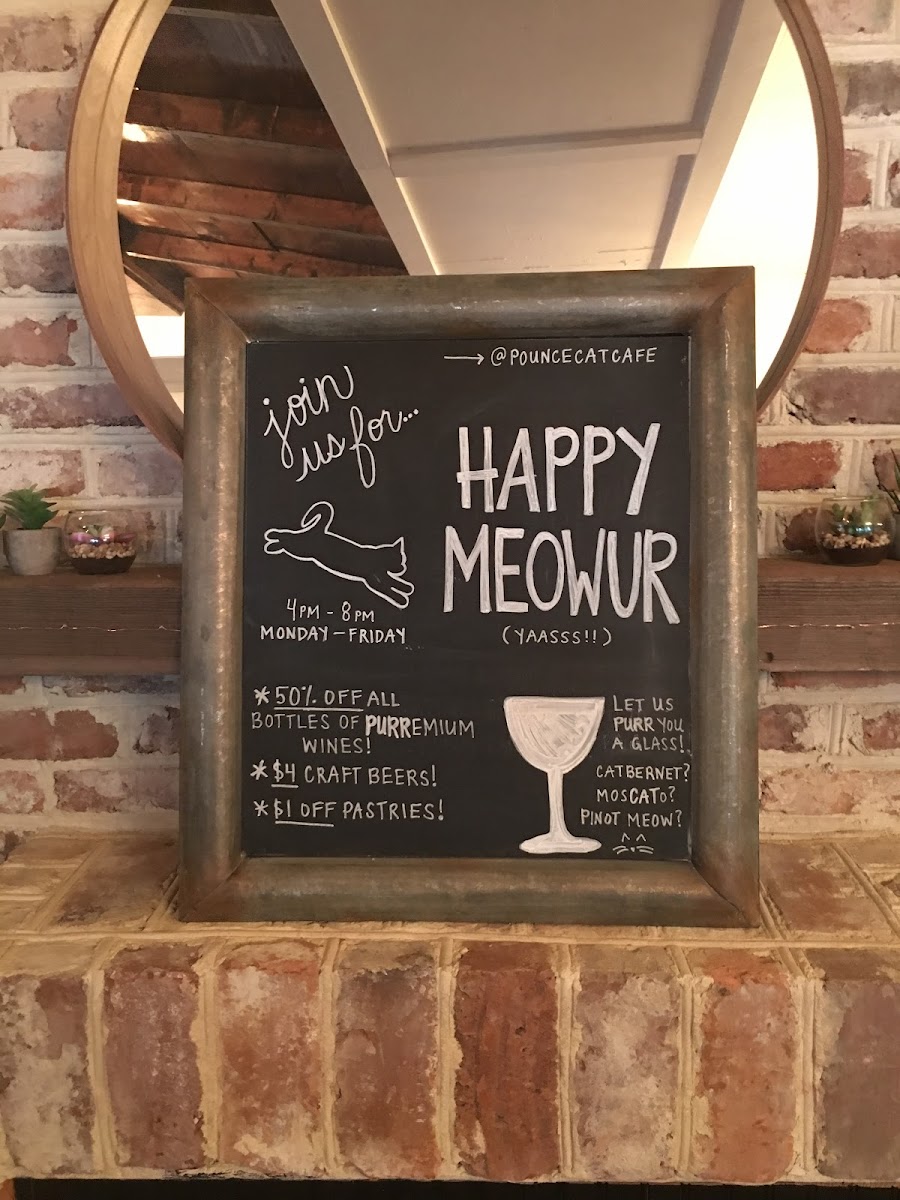 → @POUNCECATCAFE
join
us for...
HAPPY
MEOWUR
(YAASSS!!)
4PM - 8PM
MONDAY - FRIDAY
* 50% OFF ALL
BOTTLES OF PURREMIUM
WINES!
* $4 CRAFT BEERS!
* $1 OFF PASTRIES!
LET US
PURR YOU
A GLASS!
CATBERNET?
MOSCATO?
PINOT MEOW?